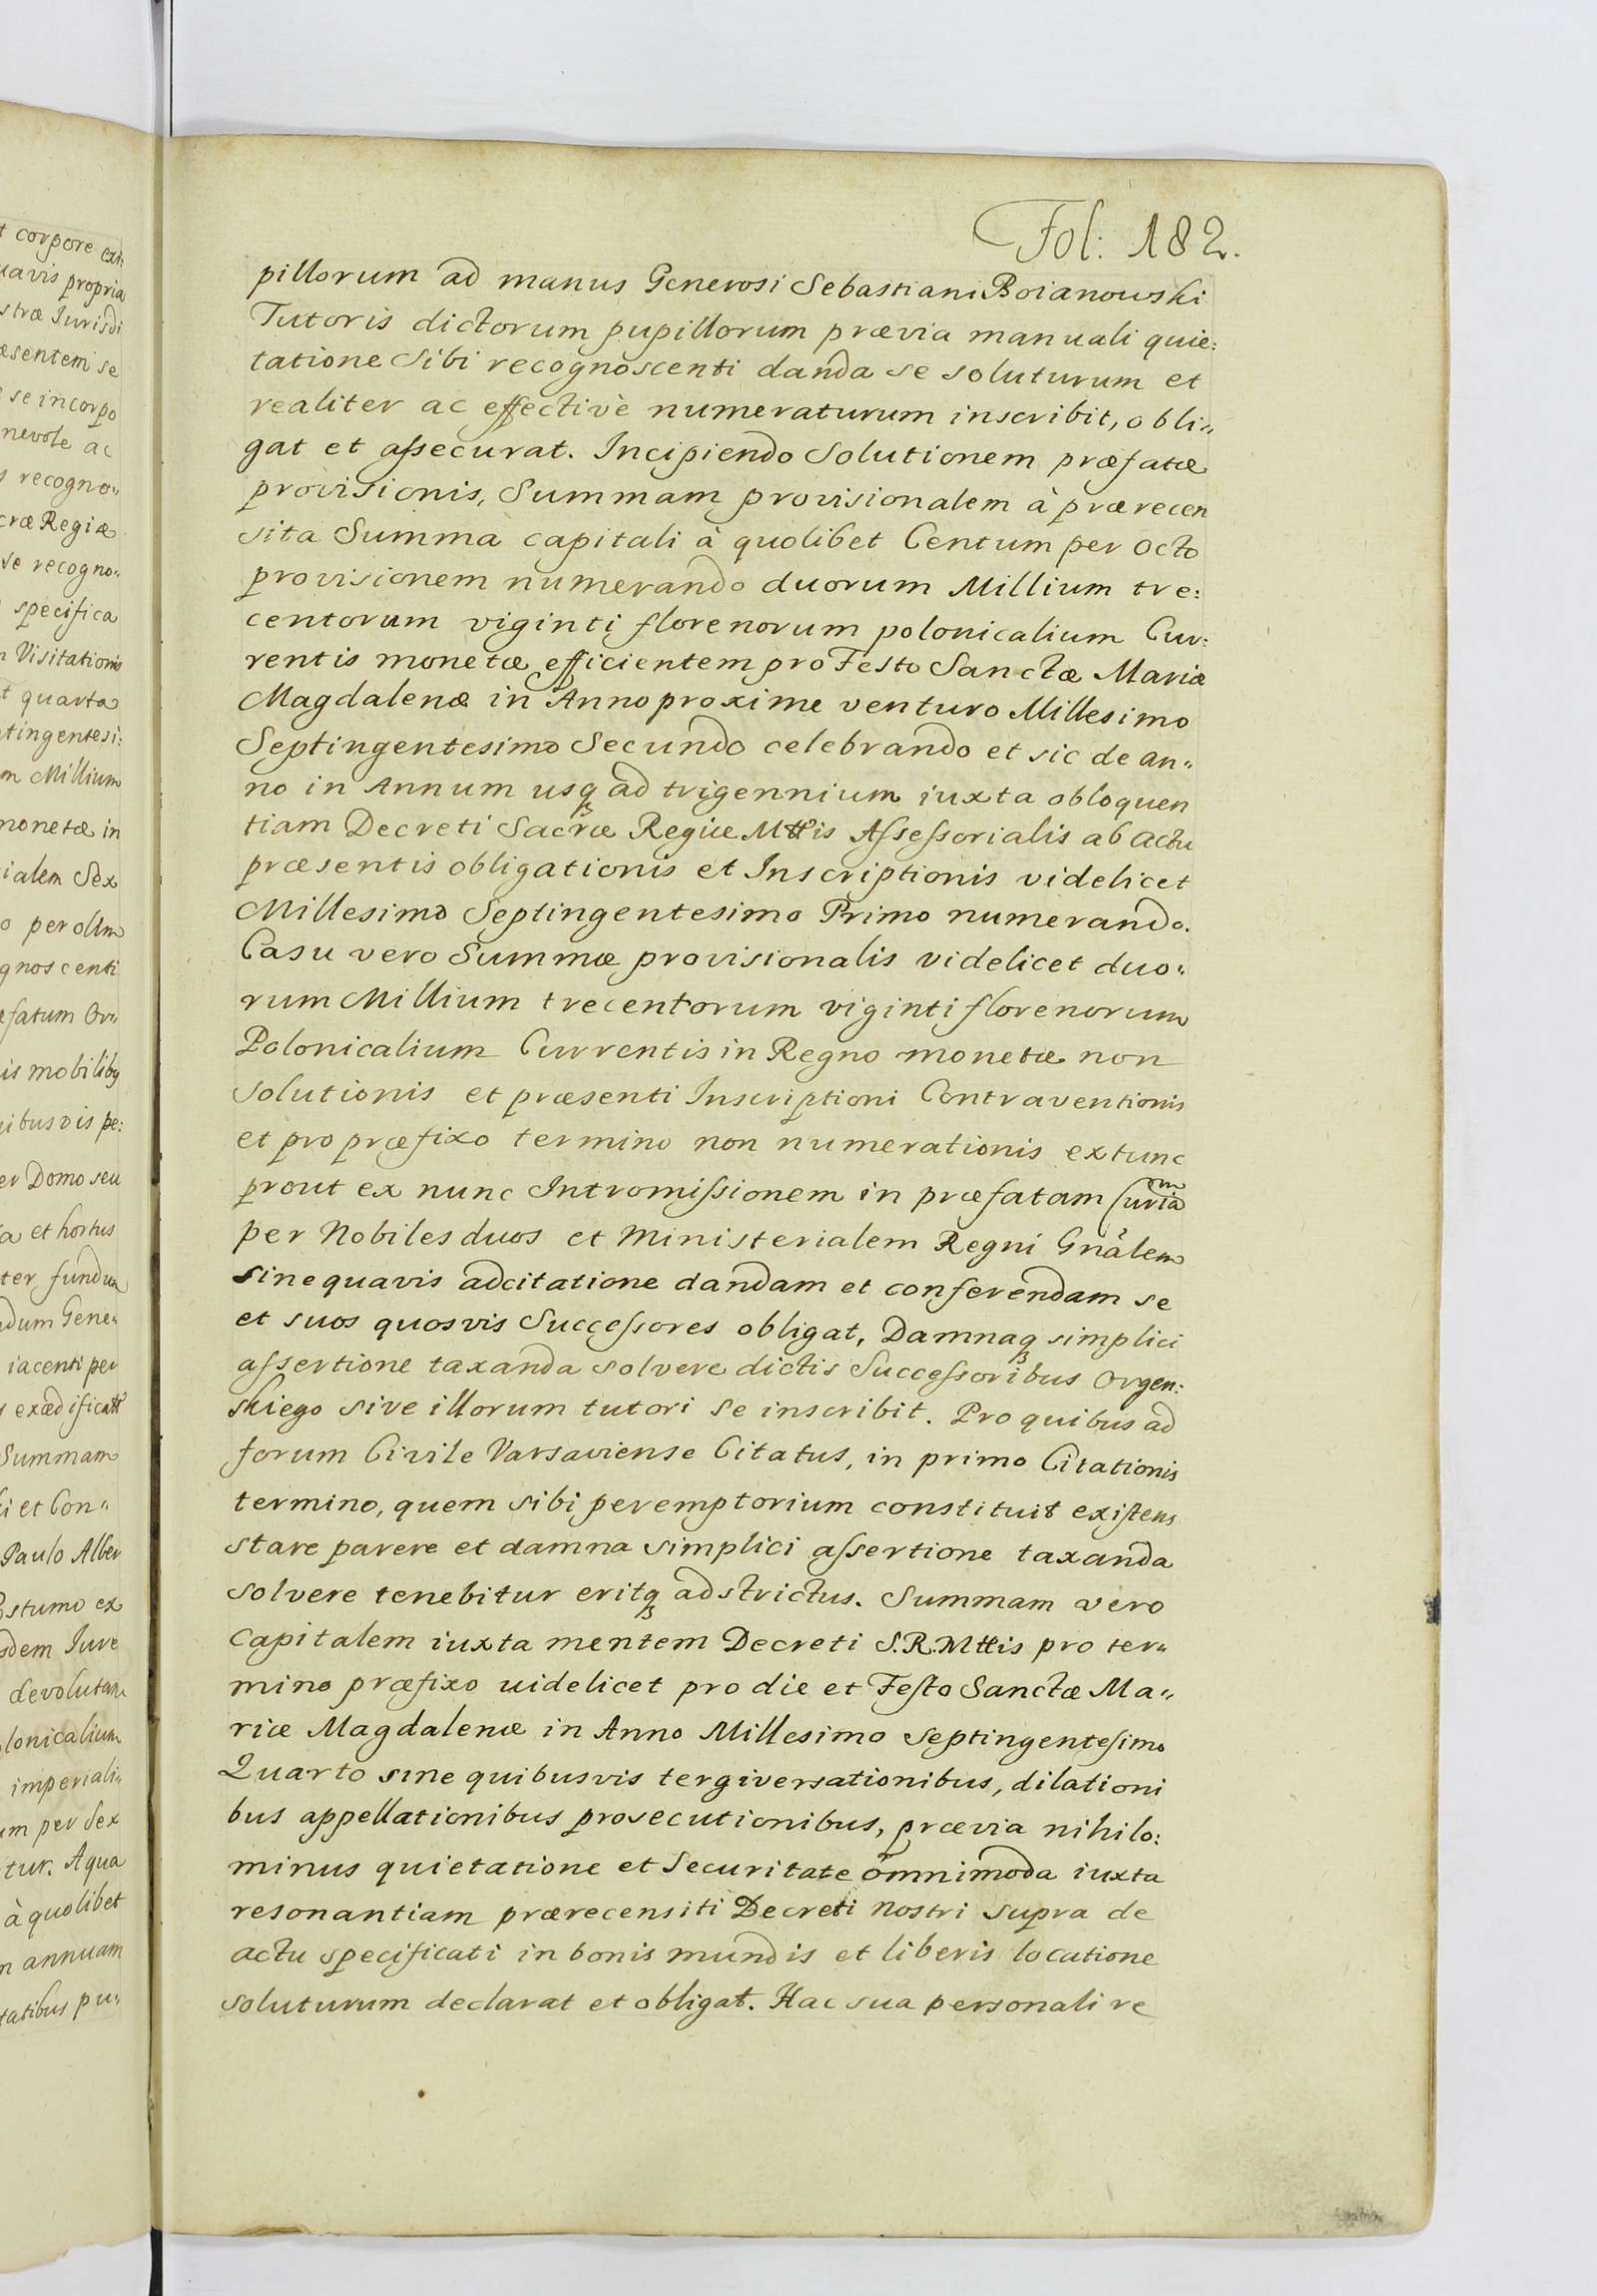 Fol: 182.
pillorum ad manus Generosi Sebastiani Boianowski
Tutoris dictorum pupillorum prævia manuali quie:
tatione Sibi recognoscenti danda se soluturum et
realiter ac effectivè numeraturum inscribit, obli„
gat et aſsecurat. Incipiendo Solutionem præfatæ
provisionis, Summam provisionalem à prærecen
sita Summa capitali à quolibet Centum per Octo
provisionem numerando duorum Millium tre:
centorum viginti florenorum polonicalium Cur:
rentis monetæ efficientem pro Festo Sanctæ Mariæ
Magdalenæ in Anno proxime venturo Millesimo
Septingentesimo Secundo celebrando et sic de an„
no in Annum usqꝫ ad trigennium iuxta obloquen
tiam Decreti Sacræ Regiæ Mttis Aſseſsorialis ab actu
præsentis obligationis et Inscriptionis videlicet
Millesimo Septingentesimo Primo numerando.
Casu vero Summæ provisionalis videlicet duo„
rum Millium trecentorum viginti florenorum
Polonicalium Currentis in Regno monetæ non
solutionis et præsenti Inscriptioni Contraventionis
et pro præfixo termino non numerationis extunc
prout ex nunc Intromiſsionem in præfatam Curiam
per Nobiles duos et Ministerialem Regni Gnâlem
sine quavis adcitatione dandam et conferendam se
et suos quosvis Succeſsores obligat, Damnaqꝫ simplici
aſsertione taxanda solvere dictis Succeſsoribus Orgen:
skiego sive illorum tutori se inscribit. Pro quibus ad
forum Civile Varsaviense Citatus, in primo Citationis
termino, quem sibi peremptorium constituit exiſtens
stare parere et damna simplici aſsertione taxanda
solvere tenebitur eritqꝫ adstrictus. Summam vero
Capitalem iuxta mentem Decreti S.R.Mttis pro ter„
mino præfixo uidelicet pro die et Feſto Sanctæ Ma„
riæ Magdalenæ in Anno Millesimo Septingenteſimo
Quarto sine quibusvis tergiversationibus, dilationi
bus appellationibus prosecutionibus, prævia nihilo:
minus quietatione et Securitate omnimoda iuxta
resonantiam prærecensiti Decreti nostri supra de
actu specificati in bonis mundis et liberis locatione
soluturum declarat et obligat. Hac sua personali re